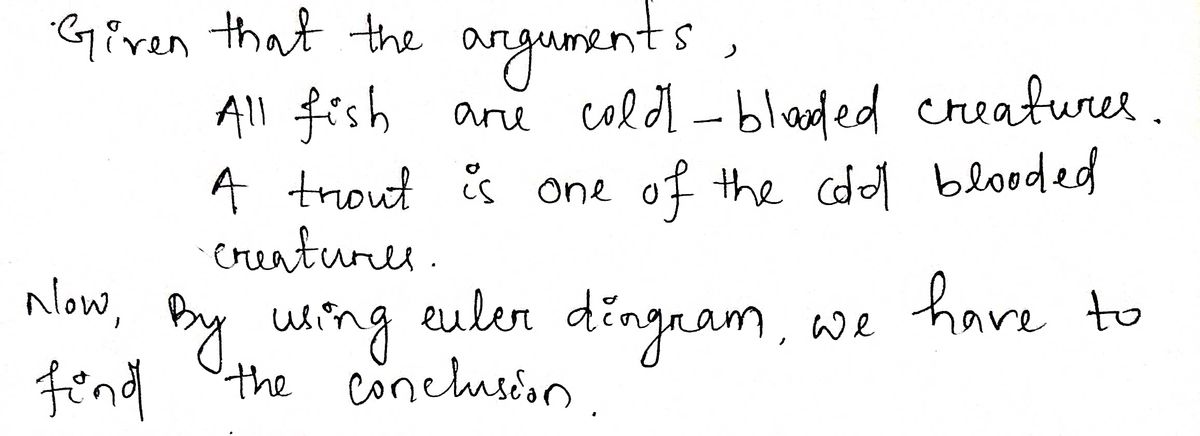 Given that the arguments,
All fish are cold-blooded creatures.
A trout is one of the cold blooded
creatures.
Now, By using euler diagram, we have to
find the conclusion.